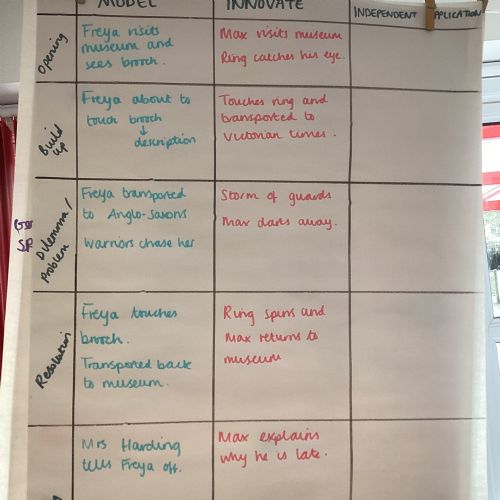 MODEL
INNOVATE
INDEPENDENT APPLICATION
Opening
Freya visits
museum and
sees brooch.
Max visits museum
Ring catches his eye.
Build
Up
Freya about to
touch brooch
↓
description
Touches ring and
transported to
Victorian times.
Dilemma/
Problem
Freya transported
to Anglo-Saxons
Warriors chase her
Storm of guards
Max darts away.
Resolution
Freya touches
brooch.
Transported back
to museum.
Ring spins and
Max returns to
museum
Mrs Harding
tells Freya off.
Max explains
why he is late.